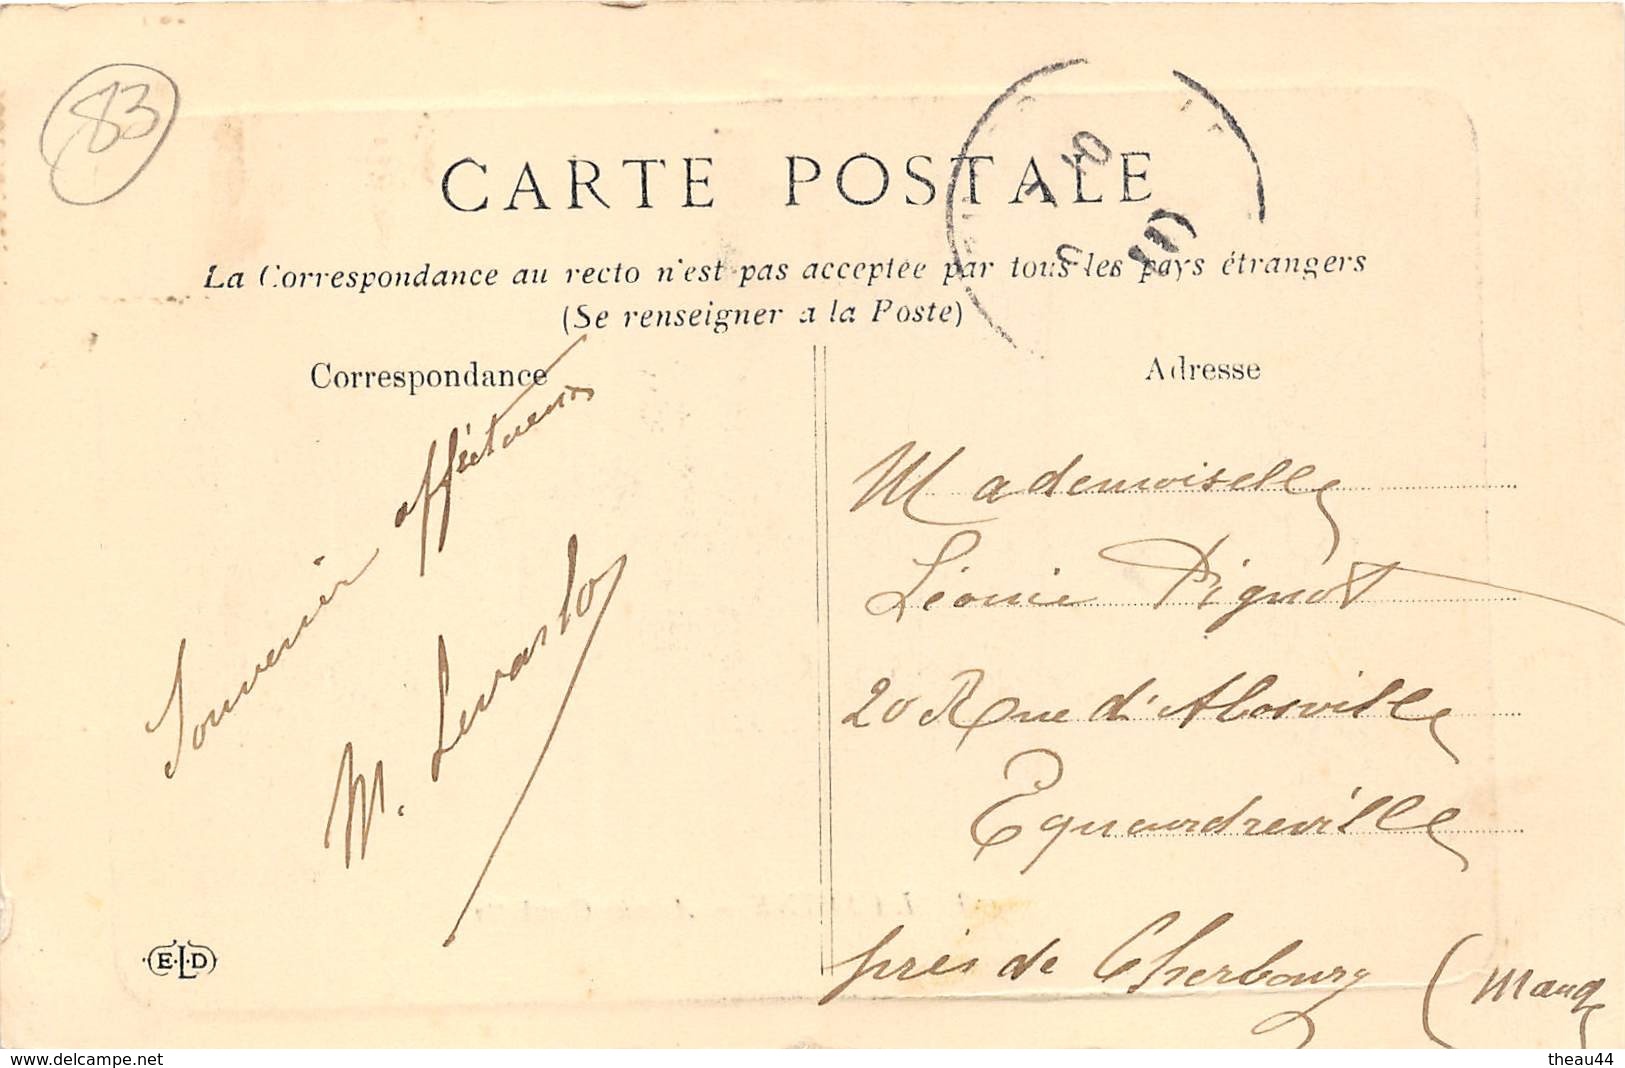 83
CARTE POSTALE
La Correspondance au recto n'est pas acceptée par tous les pays étrangers
(Se renseigner a la Poste)
Correspondance
Souvenir affectueux
M. Levasto
E.L.D
Adresse
Mademoiselle
Léonie Pignot
20 Rue d'
Equeurdreville
près de Cherbourg (Manq
delcampe.net
theau44